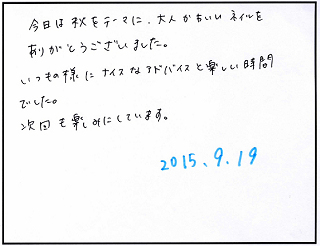 今日は秋をテーマに、大人かわいいネイルを
ありがとうございました。
いつもの様にナイスなアドバイスと楽しい時間
でした。
次回も楽しみにしています。
2015.9.19